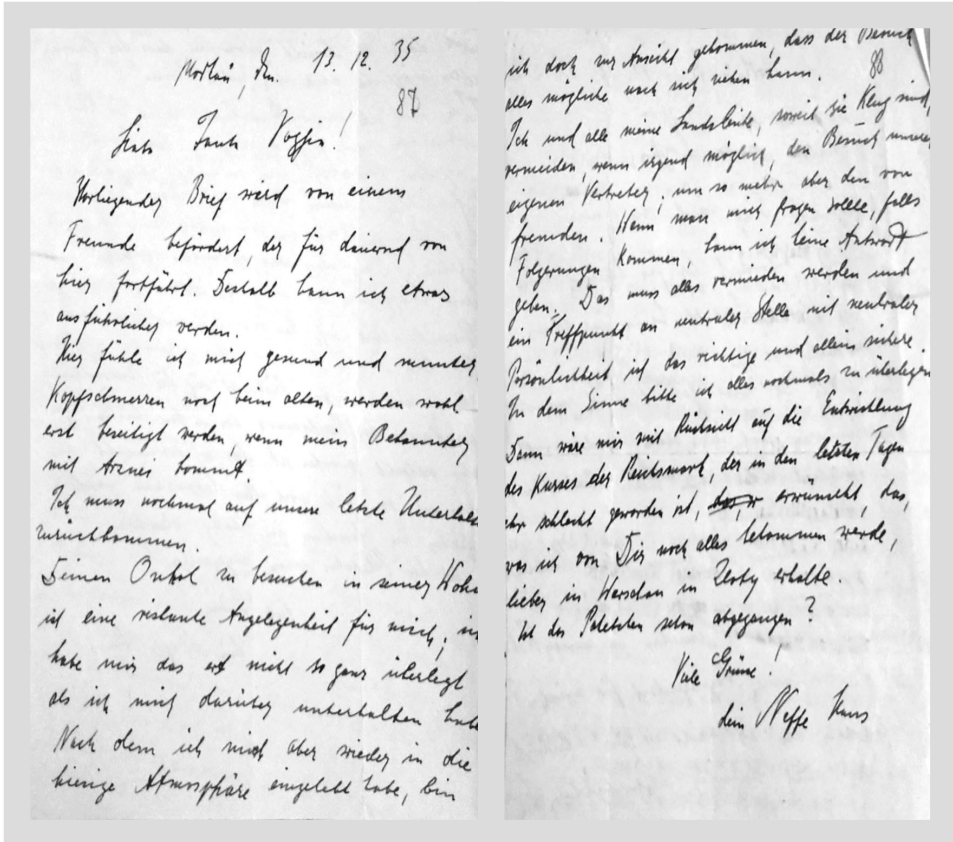 Modlau, den. 13. 12. 35
87
Liebe Tante !
Vorliegender Brief ward von einem
Freunde befördert, der für dauernd von
hier fortfährt. Deshalb kann ich etwas
ausführlicher werden.
Hier fühle ich mich gesund und munter,
Kopfschmerzen noch beim alten, werden wohl
erst beseitigt werden, wenn mein Bekannter
mit Arznei kommt
Ich muss nochmal auf unsere letzte Unterhalt
zurückkommen.
Deinen Onkel zu besuchen in seiner Wohn
ist eine riskante Angelegenheit für mich; ich
habe mir das erst nicht so ganz überlegt
als ich mich darüber unterhalten habe
Nach dem ich mich aber wieder in die
hiesige Atmosphäre eingelebt habe, bin
ich doch zur Ansicht gekommen, dass der Besuch
88
alles mögliche nach sich ziehen kann.
Ich und alle meine Landsleute, soweit sie klug sind,
vermeiden, wenn irgend möglich, den Besuch unserer
eigenen Vertreter, um so mehr aber den von
fremden. Wenn man mich fragen sollte, falls
Folgerungen kommen, kann ich keine Antwort
geben. Das muss alles vermieden werden und
ein Treffpunkt an neutraler Stelle mit neutraler
Persönlichkeit ist das richtige und allein sichere
In dem Sinne bitte ich alles nochmals zu überlegen
Dann wäre mir mit Rücksicht auf die Entwicklung
des Kurses der Reichsmark, der in den letzten Tagen
sehr schlecht geworden ist, erwünscht, das,
was ich von Dir noch alles bekommen werde,
lieber in Warschau in Zloty erhalte.
Ist das Paketchen schon abgegangen?
Viele Grüsse!
dein Neffe Hans